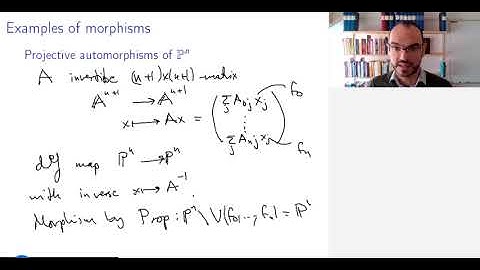 Examples of morphisms
Projective automorphisms of ℙⁿ
A invertible (n+1)×(n+1)-matrix
𝔸ⁿ⁺¹ → 𝔸ⁿ⁺¹
x ↦ Ax = ( Σⱼ A₀ⱼ xⱼ ⋮ Σⱼ Aₙⱼ xⱼ ) f₀ fₙ
map ℙⁿ → ℙⁿ
with inverse x ↦ A⁻¹
Morphism by Prop: ℙⁿ \ V(f₀,..., fₙ) = ℙⁿ